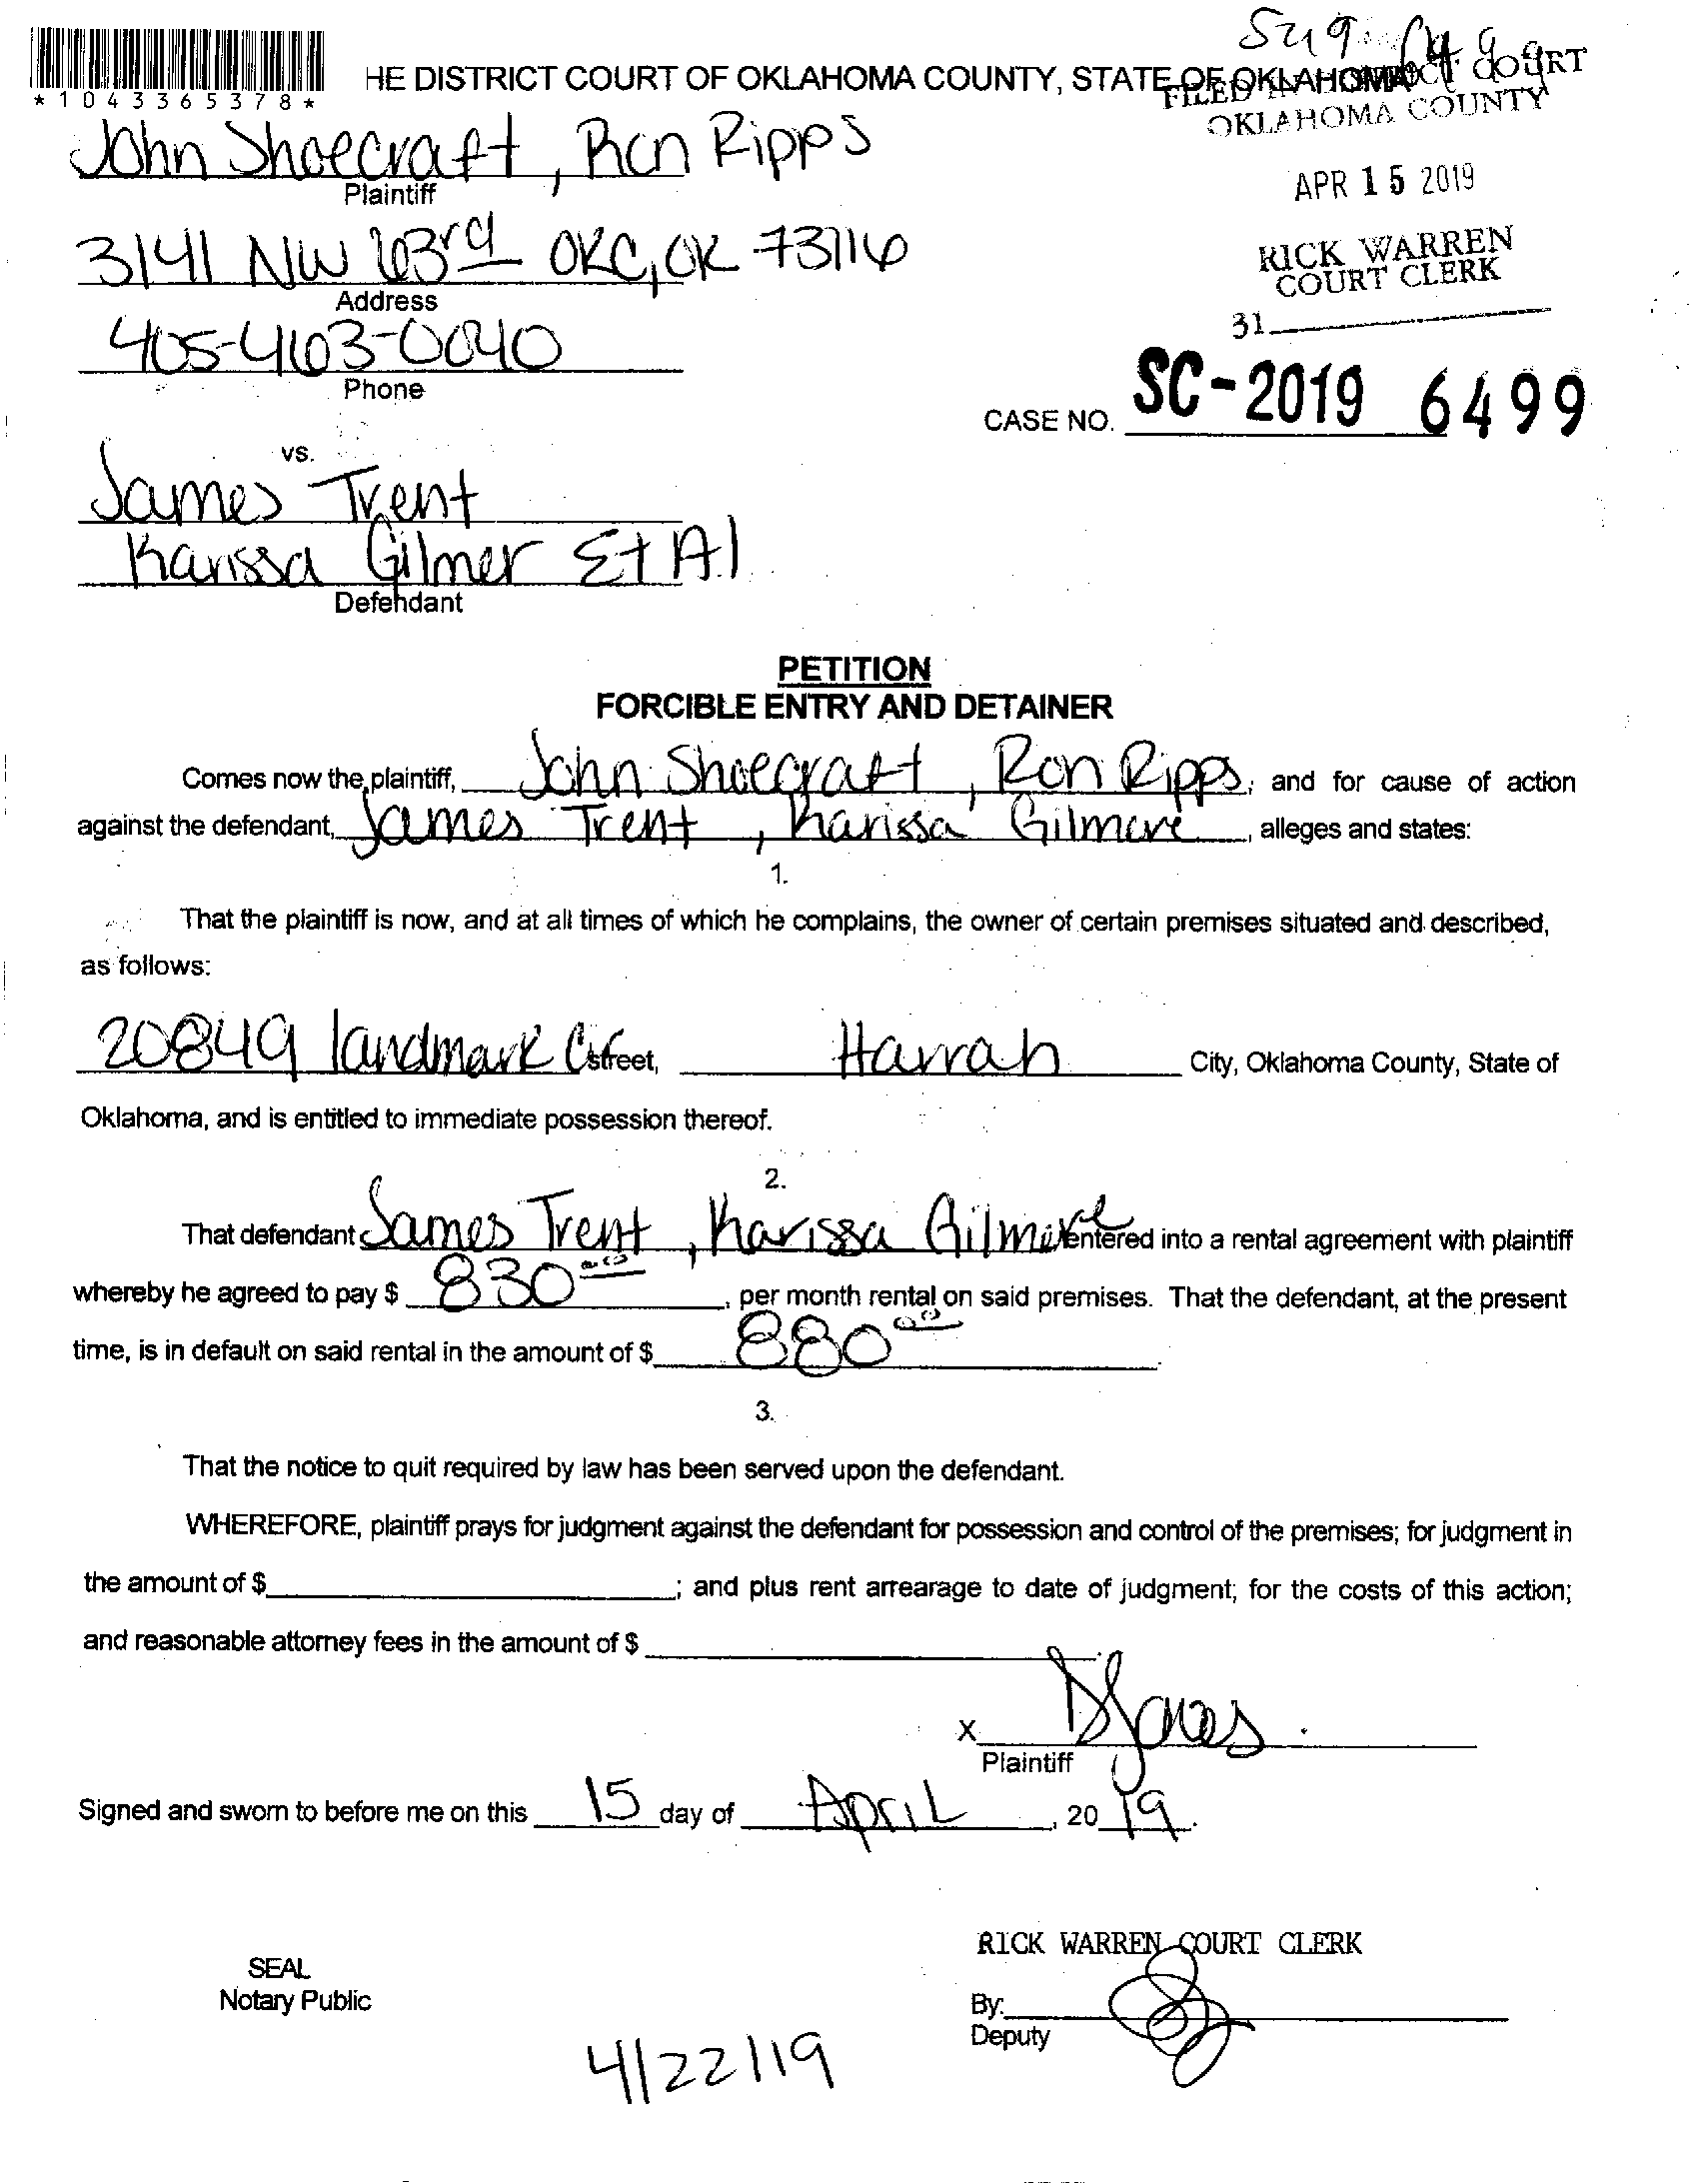 *1043365378*
HE DISTRICT COURT OF OKLAHOMA COUNTY, STATE OF OKLAHOMA
FILED IN DISTRICT COURT
OKLAHOMA COUNTY
John Shoecraft, Ron Ripps
Plaintiff
APR 15 2019
3141 NW 63rd OKC, OK 73116
Address
RICK WARREN
COURT CLERK
31
405-463-0040
Phone
CASE NO. SC-2019 6499
vs.
James Trent
Karissa Gilmer Et Al
Defendant
PETITION
FORCIBLE ENTRY AND DETAINER
Comes now the plaintiff, John Shoecraft, Ron Ripps, and for cause of action
against the defendant, James Trent, Karissa Gilmore, alleges and states:
1.
That the plaintiff is now, and at all times of which he complains, the owner of certain premises situated and described,
as follows:
20849 landmark Cir street, Harrah City, Oklahoma County, State of
Oklahoma, and is entitled to immediate possession thereof.
2.
That defendant James Trent, Karissa Gilmore entered into a rental agreement with plaintiff
whereby he agreed to pay $ 830.00, per month rental on said premises. That the defendant, at the present
time, is in default on said rental in the amount of $ 880.00.
3.
That the notice to quit required by law has been served upon the defendant.
WHEREFORE, plaintiff prays for judgment against the defendant for possession and control of the premises; for judgment in
the amount of $ ; and plus rent arrearage to date of judgment; for the costs of this action;
and reasonable attorney fees in the amount of $ .
X
Plaintiff
Signed and sworn to before me on this 15 day of April, 2019.
RICK WARREN COURT CLERK
SEAL
Notary Public
By:
Deputy
4/22/19